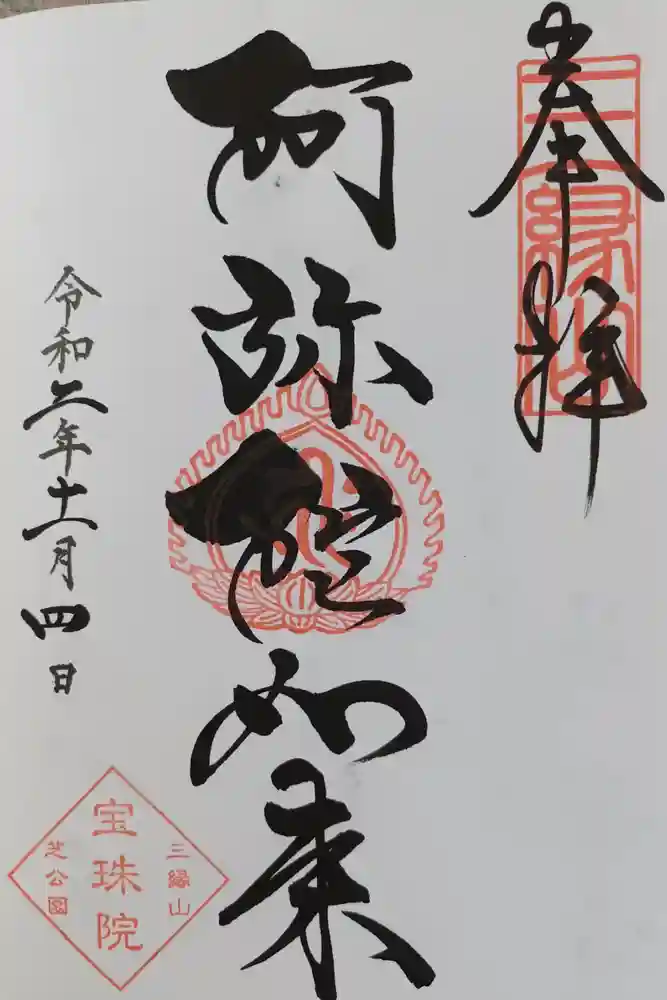 奉拝
三縁山
阿弥陀如来
令和二年十一月四日
三縁山
宝珠院
芝公園